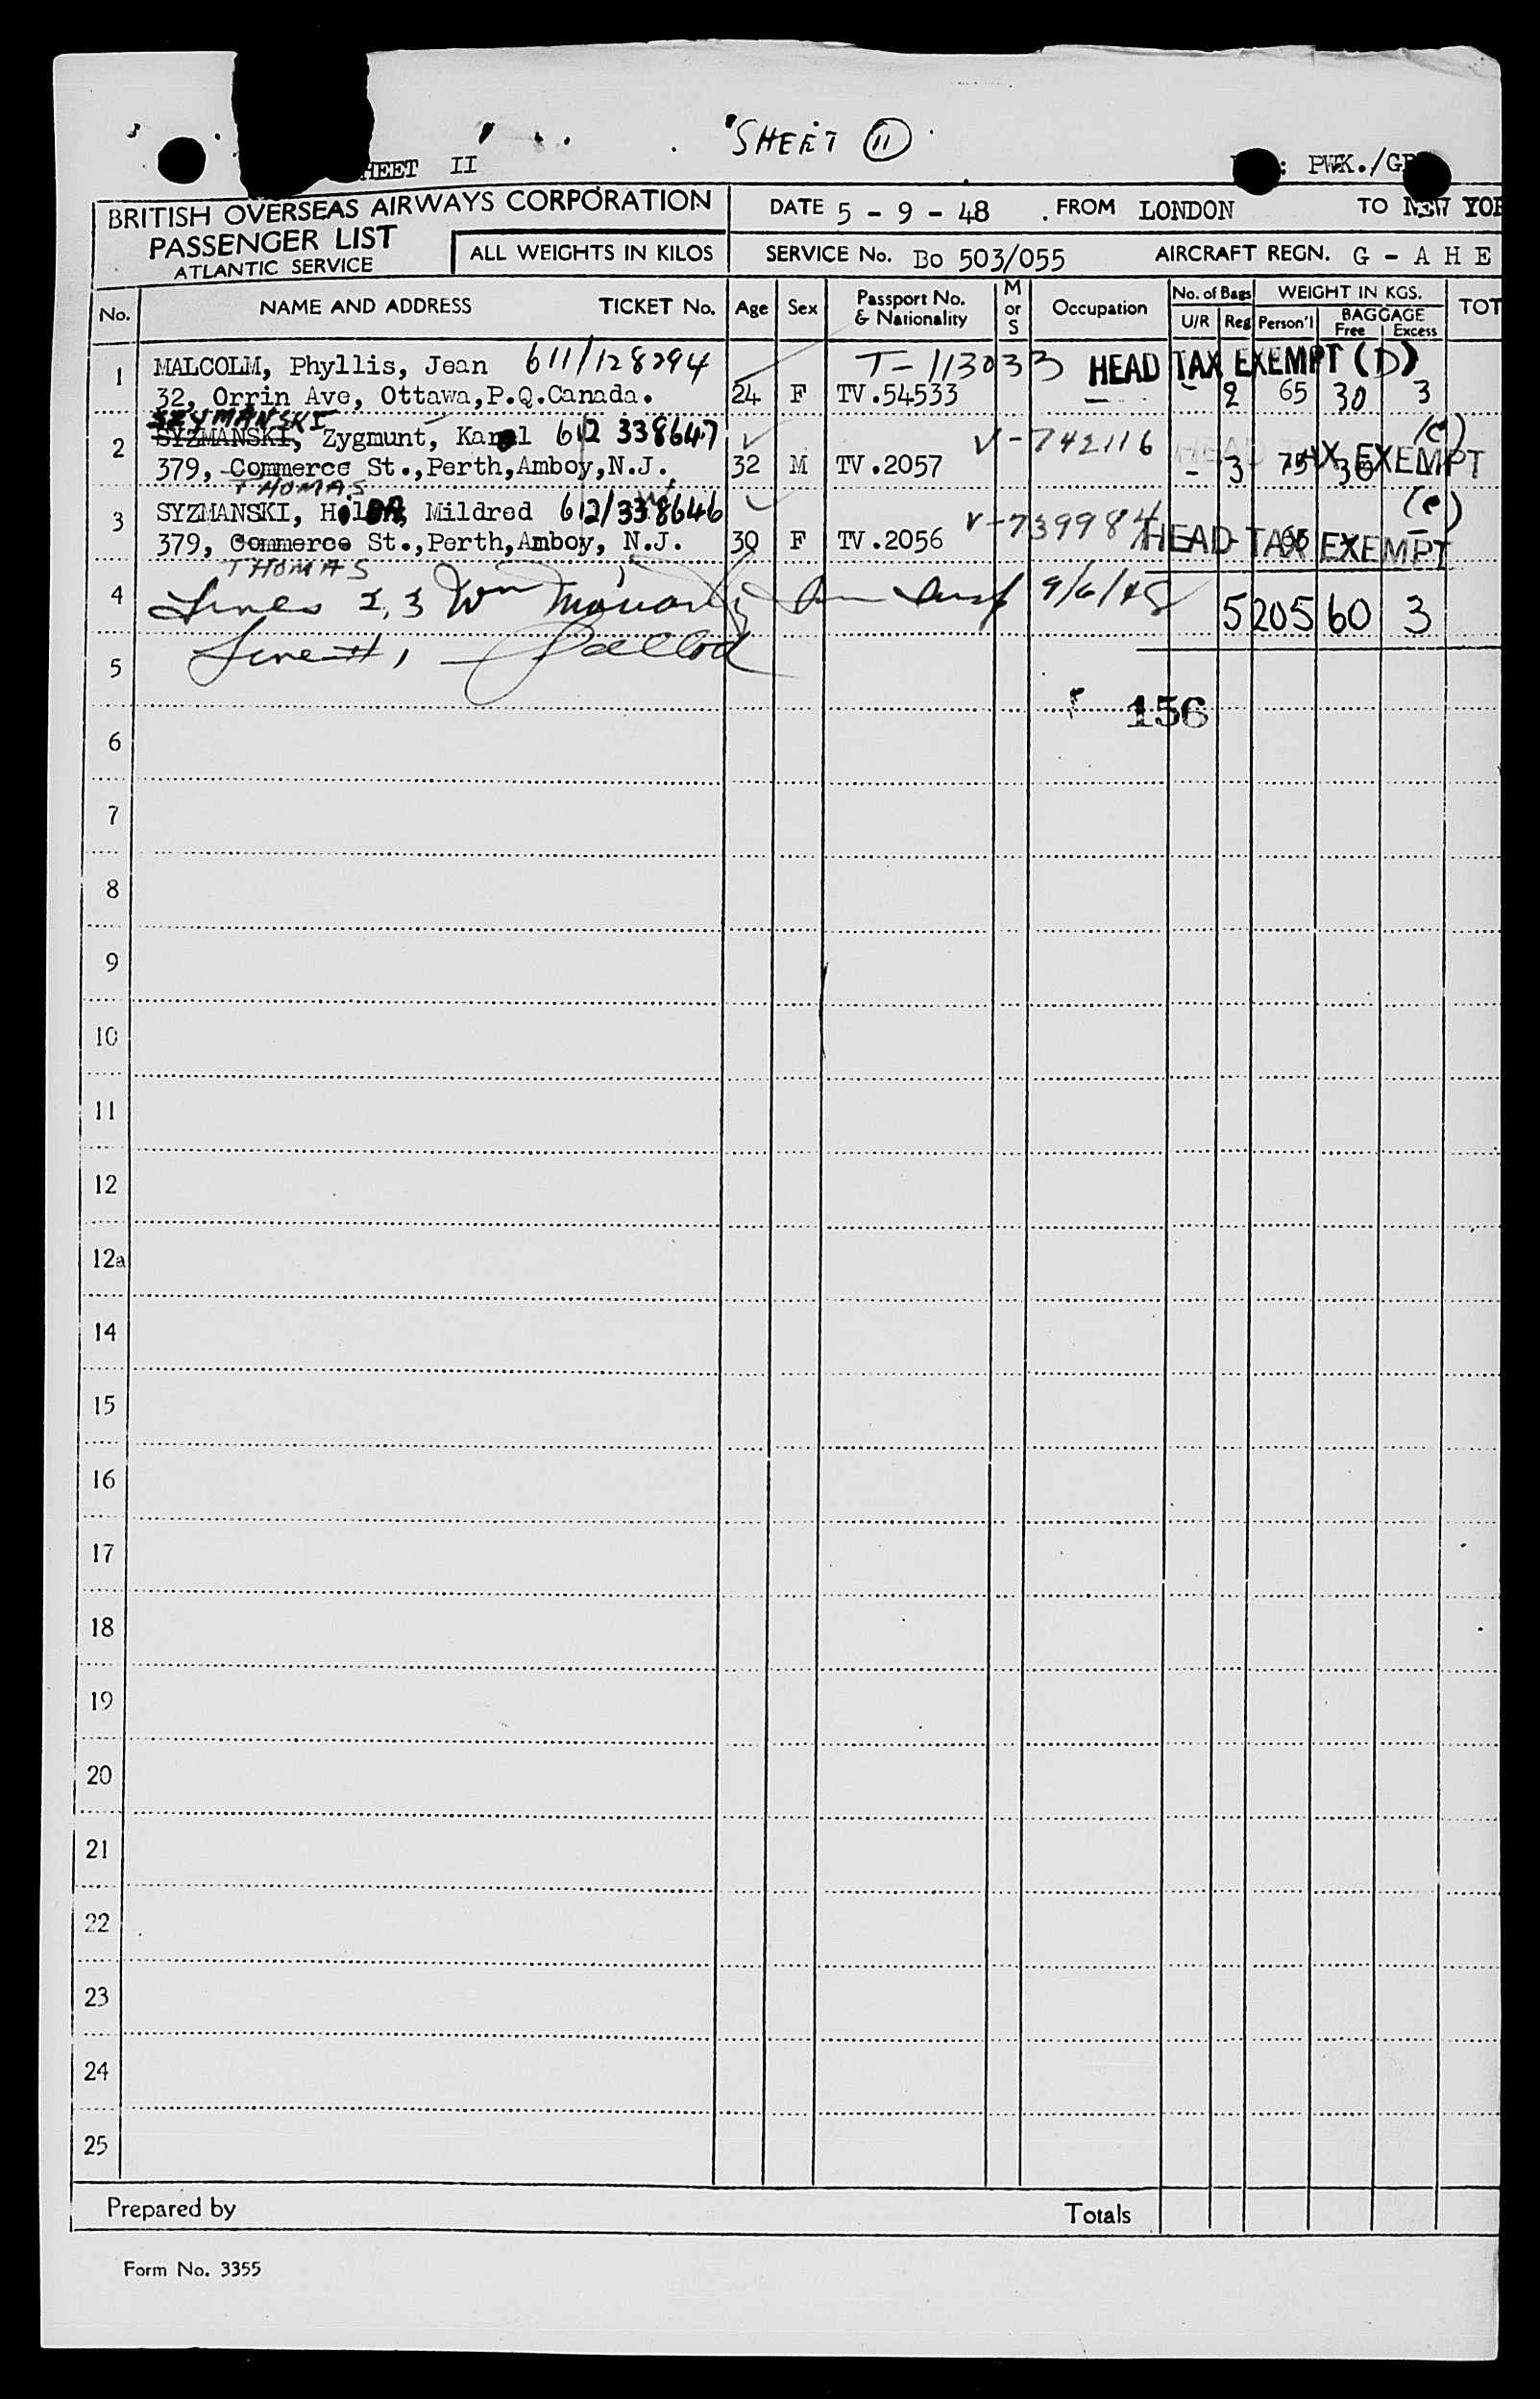 "SHEET 11
HEET II
: PWK./G
BRITISH OVERSEAS AIRWAYS CORPORATION
PASSENGER LIST
ATLANTIC SERVICE
ALL WEIGHTS IN KILOS
DATE 5 - 9 - 48 . FROM LONDON TO NEW YOR
SERVICE No. BO 503/055 AIRCRAFT REGN. G - A H E
No. NAME AND ADDRESS TICKET No. Age Sex Passport No. & Nationality M or S Occupation No. of Bags U/R Reg WEIGHT IN KGS. Person'l BAGGAGE Free Excess TOT
1 MALCOLM, Phyllis, Jean 611/128294 T-113033 HEAD TAX EXEMPT (D)
32, Orrin Ave, Ottawa,P.Q.Canada. 24 F TV.54533 — - 2 65 30 3
SZYMANSKI
2 SYZMANSKI, Zygmunt, Karol 612 338647 V-742116 HEAD TAX EXEMPT (e)
379, Commerce St.,Perth,Amboy,N.J. 32 M TV.2057 - 3 75 30
THOMAS
3 SYZMANSKI, HilDA, Mildred 612/338646 V-739984 HEAD TAX EXEMPT (e)
379, Commerce St.,Perth,Amboy, N.J. 30 F TV.2056 - 65
THOMAS
4 Lines 2, 3 Wm 9/6/48 5 205 60 3
5 Line #1
156
6
7
8
9
10
11
12
12a
14
15
16
17
18
19
20
21
22
23
24
25
Prepared by Totals
Form No. 3355